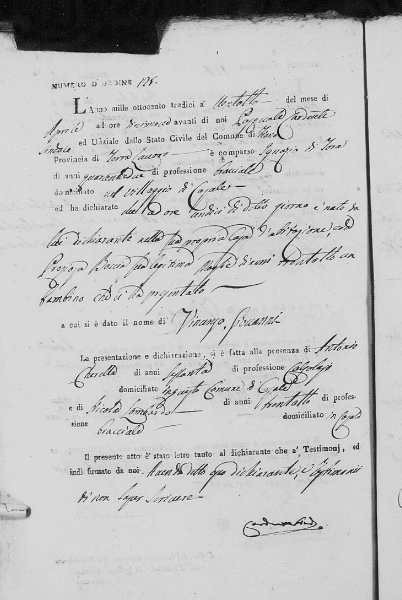 NUMERO D'ORDINE 128.
L'Anno mille ottocento tredici a' ventotto del mese di
Aprile ad ore diecinove avanti di noi Pasquale
Sindaco ed Uffiziale dello Stato Civile del Comune di
Provincia di Terra Lavoro è comparso Ignazio di
di anni quarantadue di professione bracciale
domiciliato nel villaggio di Casale
ed ha dichiarato che ad ore undici di detto giorno è nato da
lui dichiarante nella sua propria Casa d'abitazione, e da
sua legittima Moglie di anni trentotto un
bambino che ci ha presentato
a cui si è dato il nome di Vincenzo, Giovanni
Le presentazione e dichiarazione, si è fatta alla presenza di Antonio
di anni sessanta di professione
domiciliato in questo Comune di Casale
e di Nicola di anni trentotto di profes-
sione bracciale domiciliato in Casale
Il presente atto è stato letto tanto al dichiarante che a' Testimonj, ed
indi firmato da noi. Avendo detto esso dichiarante, e testimonii
di non saper scrivere